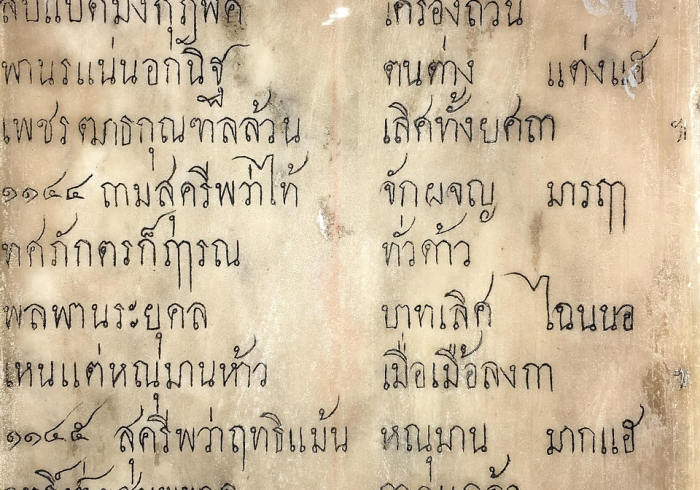 พานรแน่นอกันิฐ ตนต่าง แต่งแฮ
เพชร ฒาธกุณฑลล้วน เลิศทั้งยศถา
๑๑๔๔ ถามสุครีพว่าไท้ จักผจญ มารฤๅ
ทศภักตรก็ฦๅรณ ทั่วด้าว
พลพานระยุคล บาทเลิศ ไฉนนอ
เหนแต่หณุมานห้าว เมื่อเมื้อลงกา
๑๑๔๕ สุครีพว่าฤทธิแม้น หณุมาน มากแฮ